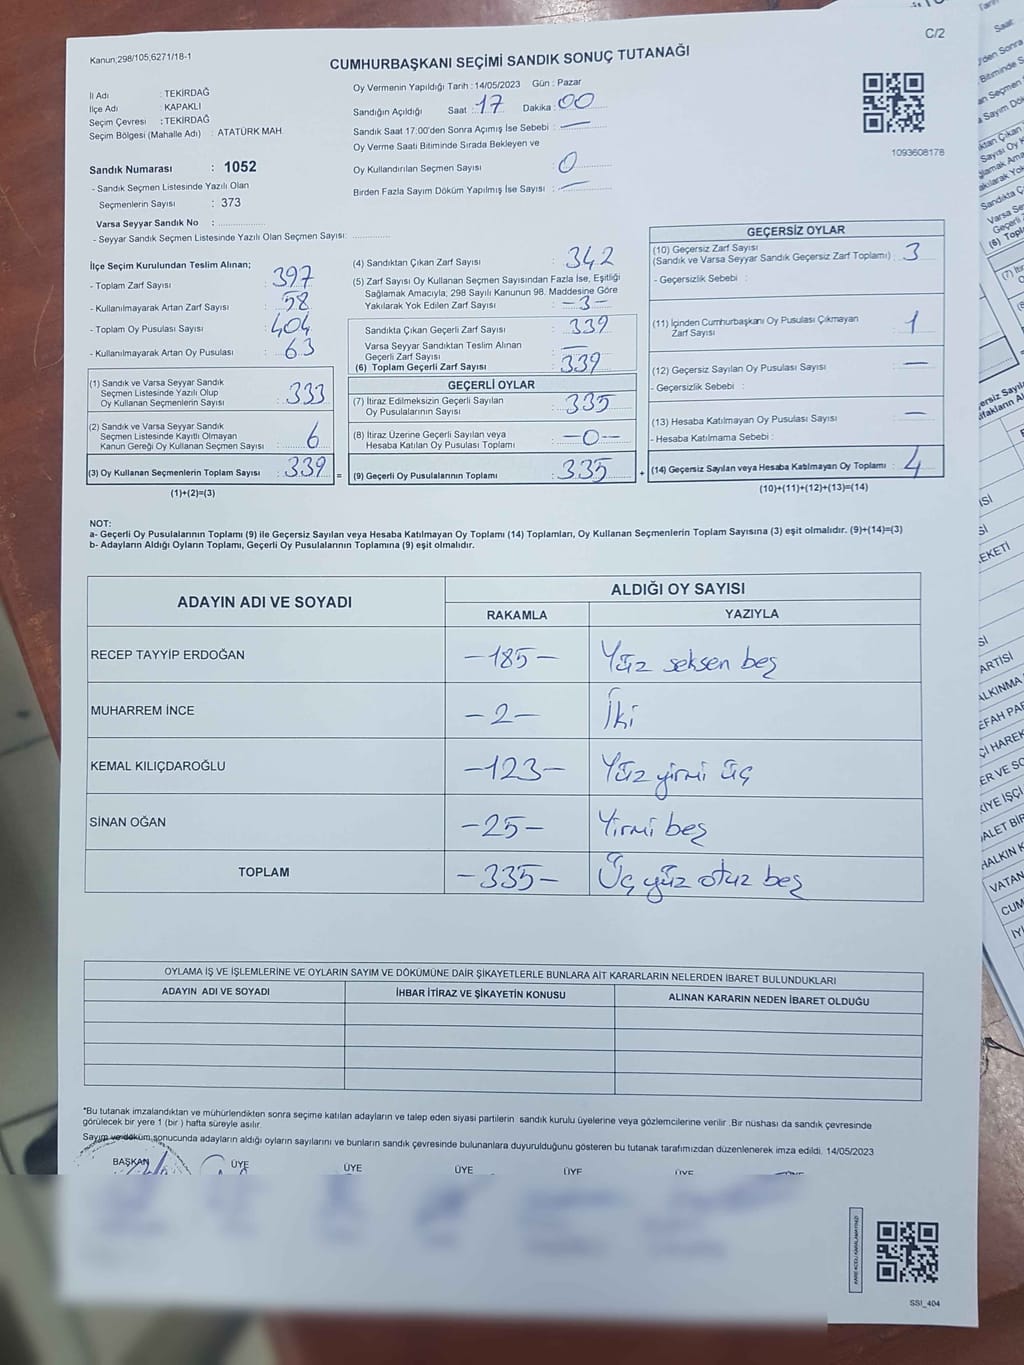 Kanun,298/105,6271/18-1
C/2
CUMHURBAŞKANI SEÇİMİ SANDIK SONUÇ TUTANAĞI
İl Adı : TEKİRDAĞ
İlçe Adı : KAPAKLI
Seçim Çevresi : TEKİRDAĞ
Seçim Bölgesi (Mahalle Adı) : ATATÜRK MAH.
Sandık Numarası : 1052
- Sandık Seçmen Listesinde Yazılı Olan
Seçmenlerin Sayısı : 373
Varsa Seyyar Sandık No :
- Seyyar Sandık Seçmen Listesinde Yazılı Olan Seçmen Sayısı:
Oy Vermenin Yapıldığı Tarih : 14/05/2023 Gün : Pazar
Sandığın Açıldığı Saat : 17 Dakika : 00
Sandık Saat 17:00'den Sonra Açımış İse Sebebi : —
Oy Verme Saati Bitiminde Sırada Bekleyen ve
Oy Kullandırılan Seçmen Sayısı : 0
Birden Fazla Sayım Döküm Yapılmış İse Sayısı : —
1093608178
İlçe Seçim Kurulundan Teslim Alınan;
- Toplam Zarf Sayısı : 397
- Kullanılmayarak Artan Zarf Sayısı : 58
- Toplam Oy Pusulası Sayısı : 404
- Kullanılmayarak Artan Oy Pusulası : 63
(1) Sandık ve Varsa Seyyar Sandık
Seçmen Listesinde Yazılı Olup
Oy Kullanan Seçmenlerin Sayısı : 333
(2) Sandık ve Varsa Seyyar Sandık
Seçmen Listesinde Kayıtlı Olmayan
Kanun Gereği Oy Kullanan Seçmen Sayısı : 6
(3) Oy Kullanan Seçmenlerin Toplam Sayısı : 339 =
(1)+(2)=(3)
(4) Sandıktan Çıkan Zarf Sayısı : 342
(5) Zarf Sayısı Oy Kullanan Seçmen Sayısından Fazla İse, Eşitliği
Sağlamak Amacıyla; 298 Sayılı Kanunun 98. Maddesine Göre
Yakılarak Yok Edilen Zarf Sayısı : -3-
Sandıkta Çıkan Geçerli Zarf Sayısı : 339
Varsa Seyyar Sandıktan Teslim Alınan
Geçerli Zarf Sayısı : —
(6) Toplam Geçerli Zarf Sayısı : 339
GEÇERLİ OYLAR
(7) İtiraz Edilmeksizin Geçerli Sayılan
Oy Pusulalarının Sayısı : 335
(8) İtiraz Üzerine Geçerli Sayılan veya
Hesaba Katılan Oy Pusulası Toplamı : -0-
(9) Geçerli Oy Pusulalarının Toplamı : 335 +
GEÇERSİZ OYLAR
(10) Geçersiz Zarf Sayısı
(Sandık ve Varsa Seyyar Sandık Geçersiz Zarf Toplamı) : 3
- Geçersizlik Sebebi :
(11) İçinden Cumhurbaşkanı Oy Pusulası Çıkmayan
Zarf Sayısı : 1
(12) Geçersiz Sayılan Oy Pusulası Sayısı : —
- Geçersizlik Sebebi :
(13) Hesaba Katılmayan Oy Pusulası Sayısı : —
- Hesaba Katılmama Sebebi :
(14) Geçersiz Sayılan veya Hesaba Katılmayan Oy Toplamı : 4
(10)+(11)+(12)+(13)=(14)
NOT:
a- Geçerli Oy Pusulalarının Toplamı (9) ile Geçersiz Sayılan veya Hesaba Katılmayan Oy Toplamı (14) Toplamları, Oy Kullanan Seçmenlerin Toplam Sayısına (3) eşit olmalıdır. (9)+(14)=(3)
b- Adayların Aldığı Oyların Toplamı, Geçerli Oy Pusulalarının Toplamına (9) eşit olmalıdır.
ADAYIN ADI VE SOYADI
ALDIĞI OY SAYISI
RAKAMLA YAZIYLA
RECEP TAYYİP ERDOĞAN -185- Yüz seksen beş
MUHARREM İNCE -2- İki
KEMAL KILIÇDAROĞLU -123- Yüz yirmi üç
SİNAN OĞAN -25- Yirmi beş
TOPLAM -335- Üç yüz otuz beş
OYLAMA İŞ VE İŞLEMLERİNE VE OYLARIN SAYIM VE DÖKÜMÜNE DAİR ŞİKAYETLERLE BUNLARA AİT KARARLARIN NELERDEN İBARET BULUNDUKLARI
ADAYIN ADI VE SOYADI İHBAR İTİRAZ VE ŞİKAYETİN KONUSU ALINAN KARARIN NEDEN İBARET OLDUĞU
*Bu tutanak imzalandıktan ve mühürlendikten sonra seçime katılan adayların ve talep eden siyasi partilerin sandık kurulu üyelerine veya gözlemcilerine verilir .Bir nüshası da sandık çevresinde
görülecek bir yere 1 (bir ) hafta süreyle asılır.
Sayım ve döküm sonucunda adayların aldığı oyların sayılarını ve bunların sandık çevresinde bulunanlara duyurulduğunu gösteren bu tutanak tarafımızdan düzenlenerek imza edildi. 14/05/2023
BAŞKAN ÜYE ÜYE ÜYE ÜYE ÜYE
SSI_404